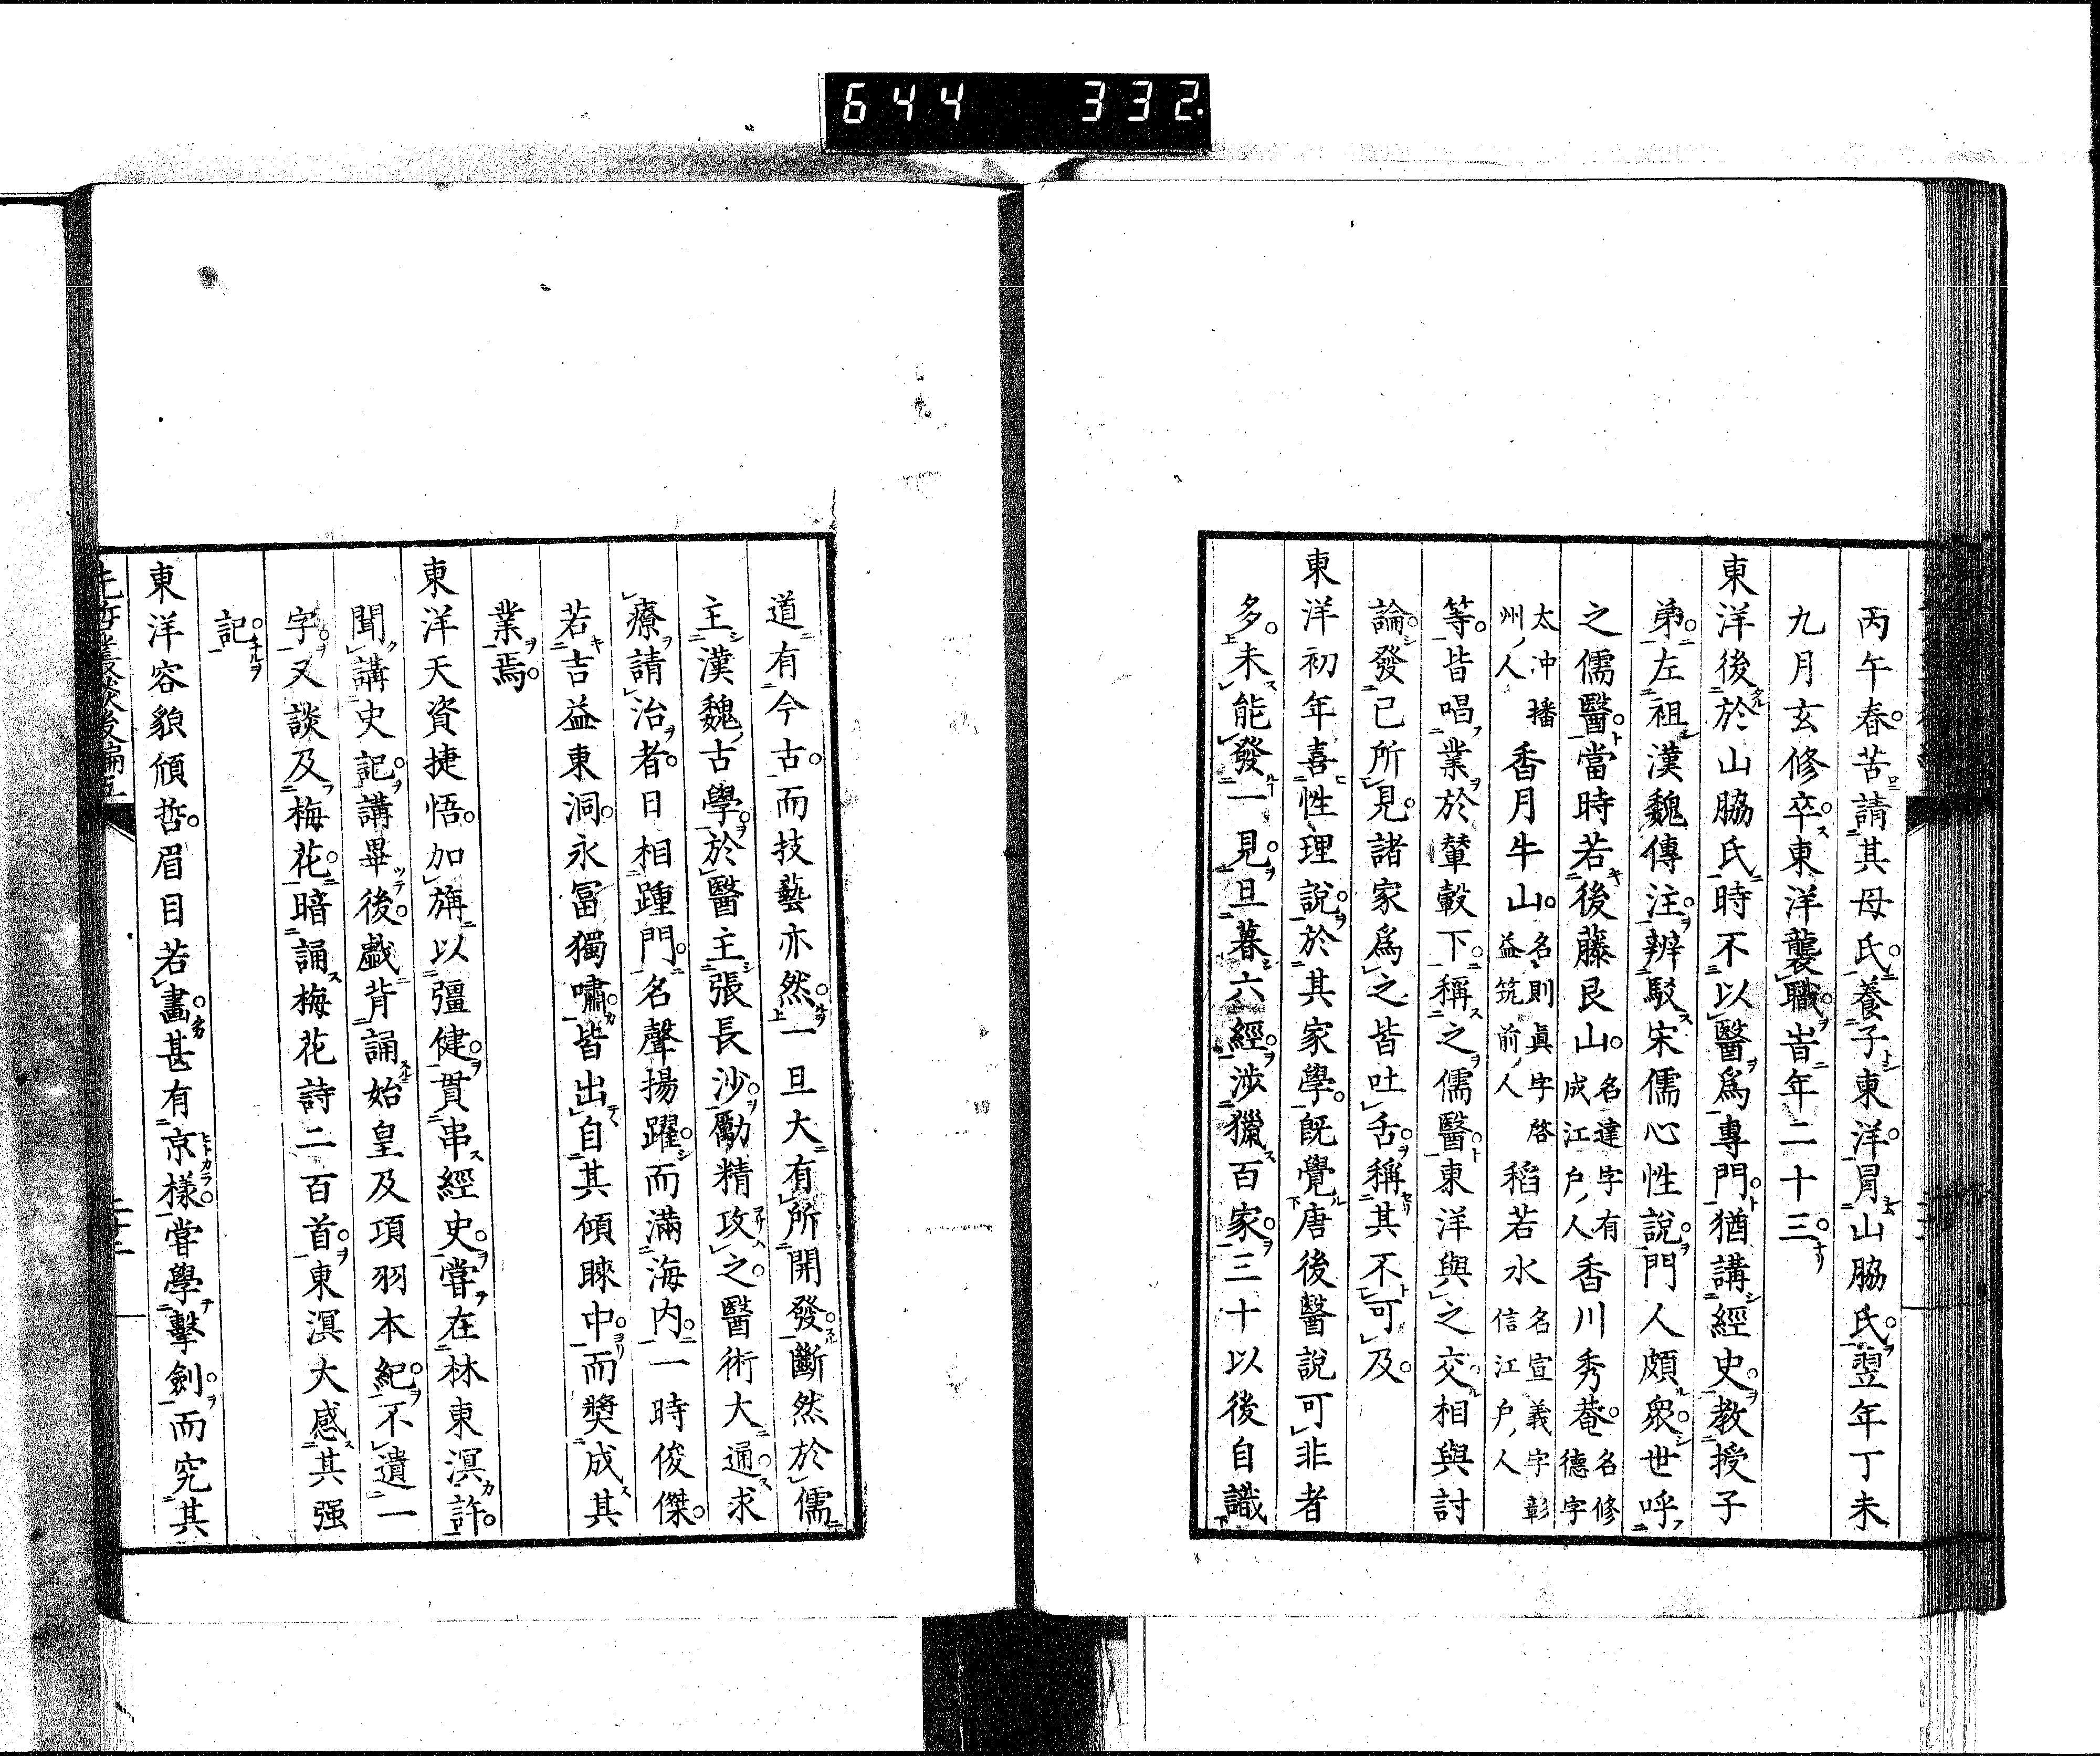 644 332
丙午春。苦請其母氏。養子東洋。冐山脇氏。翌年丁未
九月玄修卒。東洋襲職。旹年二十三。
東洋後於山脇氏。時不以醫爲專門。猶講經史。教授子
弟。左祖漢魏傳注。辨駁宋儒心性說。門人頗衆。世呼
之儒醫。當時若後藤艮山。名達字有成江戶人香川秀菴。名修德字
太冲播州人香月牛山。名則眞字啓益筑前人稻若水名宣義字彰信江戶人
等。皆唱業於輦轂下。稱之儒醫。東洋與之交。相與討
論。發已所見。諸家爲之皆吐舌。稱其不可及。
東洋初年喜性理說。於其家學。旣覺唐後醫說可非者
多。未能發一見。旦暮六經。涉獵百家。三十以後自識
道有今古。而技藝亦然。一旦大有所開發。斷然於儒
主漢魏古學。於醫主張長沙。勵精攻之。醫術大通。求
療請治者。日相踵門。名聲揚躍。而滿海内。一時俊傑。
若吉益東洞。永冨獨嘯。皆出自其傾睞中。而奬成其
業焉。
東洋天資捷悟。加旃以彊健。貫串經史。嘗在林東溟許。
聞講史記。講畢後。戲背誦始皇及項羽本紀。不遺一
字。又談及梅花。暗誦梅花詩二百首。東溟大感其强
記。
東洋容貌頎哲。眉目若畫。甚有京樣。嘗學擊劍。而究其
先哲叢談後編五